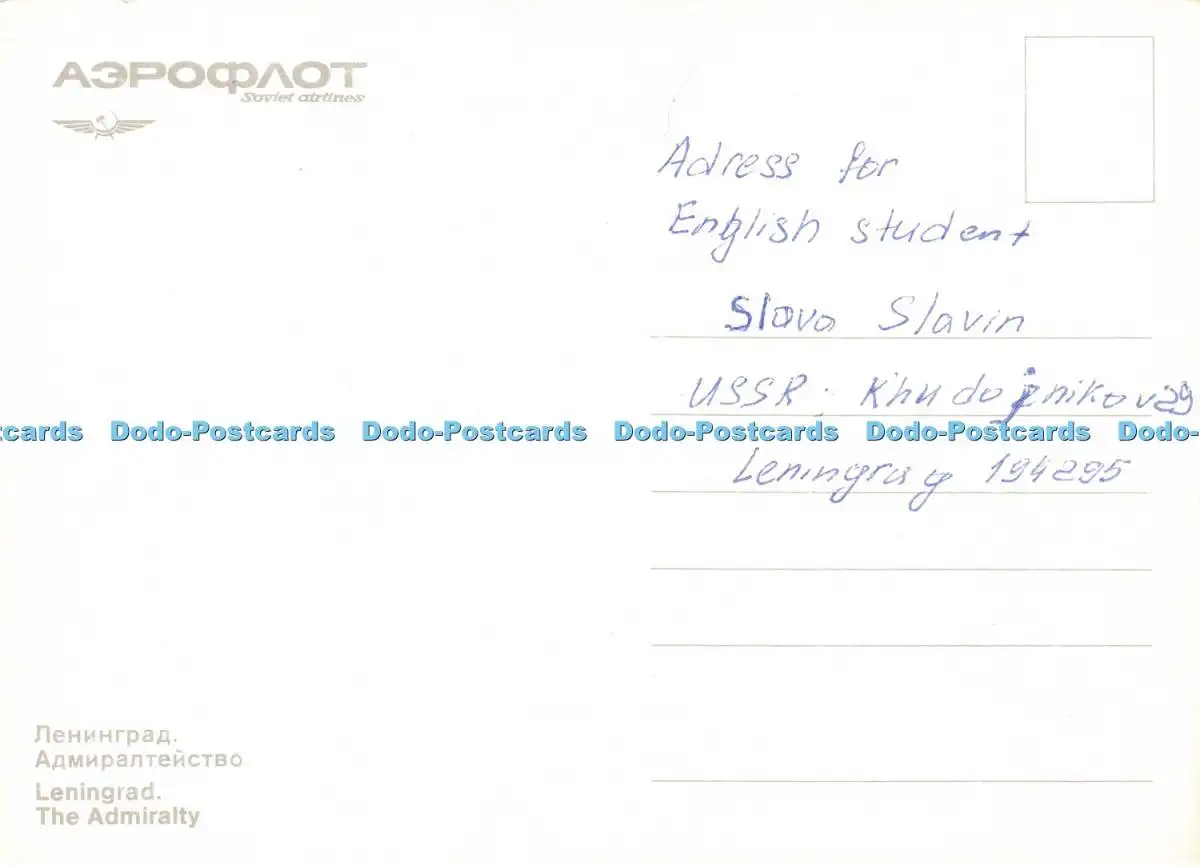 АЭРОФЛОТ
Soviet airlines
Adress for
English student
Slava Slavin
USSR. Khudojnikov 29
Leningrag 194295
cards Dodo-Postcards Dodo-Postcards Dodo-Postcards Dodo-Postcards Dodo-
Ленинград.
Адмиралтейство
Leningrad.
The Admiralty